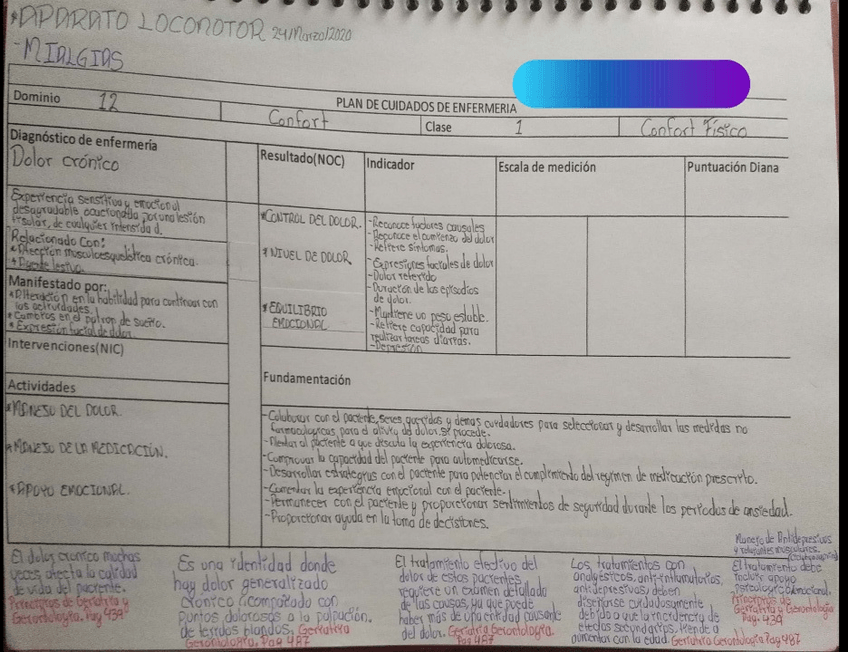 *APARATO LOCOMOTOR 24/Marzo/2020
-MIALGIAS
PLAN DE CUIDADOS DE ENFERMERIA
Dominio 12 Confort Clase 1 Confort Físico
Diagnóstico de enfermería
Dolor crónico
Resultado(NOC) Indicador Escala de medición Puntuación Diana
Experiencia sensitiva y emocional
desagradable ocacionada por una lesión
tisular, de cualquier intensidad.
Relacionado Con:
*Afección musculoesquelética crónica.
Manifestado por:
*Alteración en la habilidad para continuar con
las actividades.
*Cambios en el patron de sueño.
*Expresión facial de dolor
*CONTROL DEL DOLOR.
-Reconoce factores causales
-Reconoce el comienzo del dolor
-Refiere síntomas.
*NIVEL DE DOLOR
-Expresiones faciales de dolor
-Dolor referido
-Duración de los episodios
de dolor.
*EQUILIBRIO
EMOCIONAL
-Mantiene un peso estable.
-Refiere capacidad para
realizar tareas diarias.
-Depresión
Intervenciones(NIC)
Actividades
Fundamentación
*MANEJO DEL DOLOR.
-Colaborar con el paciente, seres queridos y demas cuidadores para seleccionar y desarrollar las medidas no
farmacologicas para el alivio del dolor, si procede.
-Alentar al paciente a que discuta la experiencia dolorosa.
*MANEJO DE LA MEDICACIÓN.
-Comprovar la capacidad del paciente para automedicarse.
-Desarrollar estrategias con el paciente para potenciar el cumplimiento del regimen de medicación prescrito.
*APOYO EMOCIONAL.
-Comentar la experiencia emocional con el paciente.
-Permanecer con el paciente y proporcionar sentimientos de seguridad durante los periodos de ansiedad.
-Proporcionar ayuda en la toma de decisiones.
El dolor cronico muchas
veces afecta la calidad
de vida del paciente.
Principios de Geriatria y
Gerontologia. Pag 439
Es una identidad donde
hay dolor generalizado
cronico acompañado con
puntos dolorosos a la palpación
de tejidos blandos. Geriatria
Gerontologia. Pag 487
El tratamiento efectivo del
dolor de estos pacientes
requiere un examen detallado
de las causas, ya que puede
haber más de una entidad causante
del dolor. Geriatria Gerontologia.
Pag 487
Los tratamientos con
analgesicos, anti-inflamatorios,
antidepresivos, deben
diseñarse cuidadosamente
debido a que la incidencia de
efectos secundarios tiende a
aumentar con la edad. Geriatria Gerontologia Pag 487
Manejo de Antidepresivos
y relajantes musculares.
El tratamiento debe
incluir apoyo
psicologico emocional.
Principios de
Geriatria y Gerontologia
Pag. 439